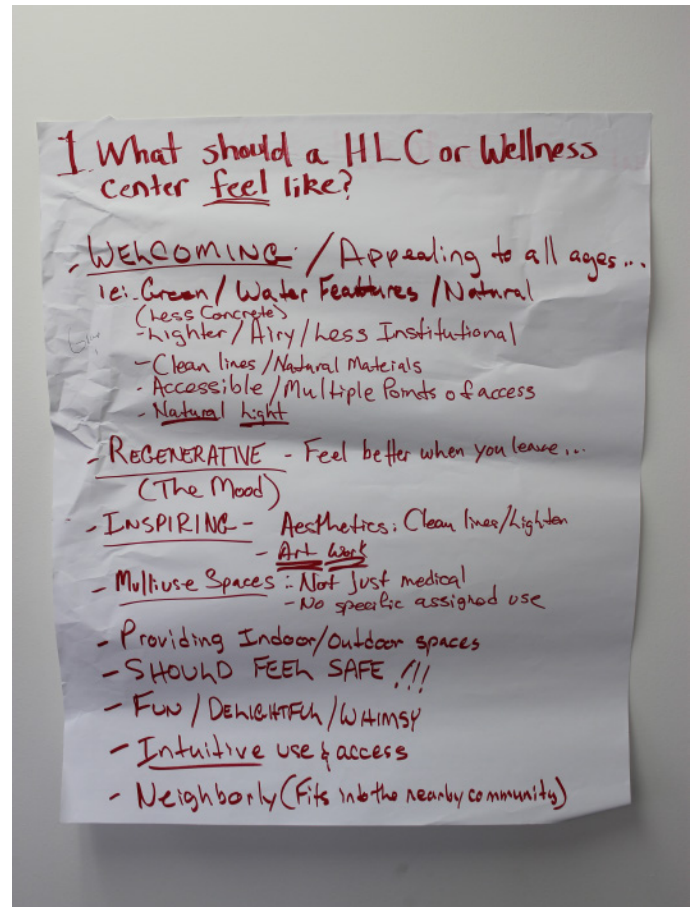 1. What should a HLC or Wellness
center feel like?
- WELCOMING / Appealing to all ages...
ie: Green / Water Features / Natural
(Less Concrete)
- Lighter / Airy / Less Institutional
- Clean lines / Natural Materials
- Accessible / Multiple Points of access
- Natural Light
- REGENERATIVE - Feel better when you leave...
(The Mood)
- INSPIRING - Aesthetics: Clean lines/Lighten
- Art Work
- Multiuse Spaces : - Not just medical
- No specific assigned use
- Providing Indoor/Outdoor spaces
- SHOULD FEEL SAFE !!!
- FUN / DELIGHTFUL / WHIMSY
- Intuitive use & access
- Neighborly (Fits into the nearby community)